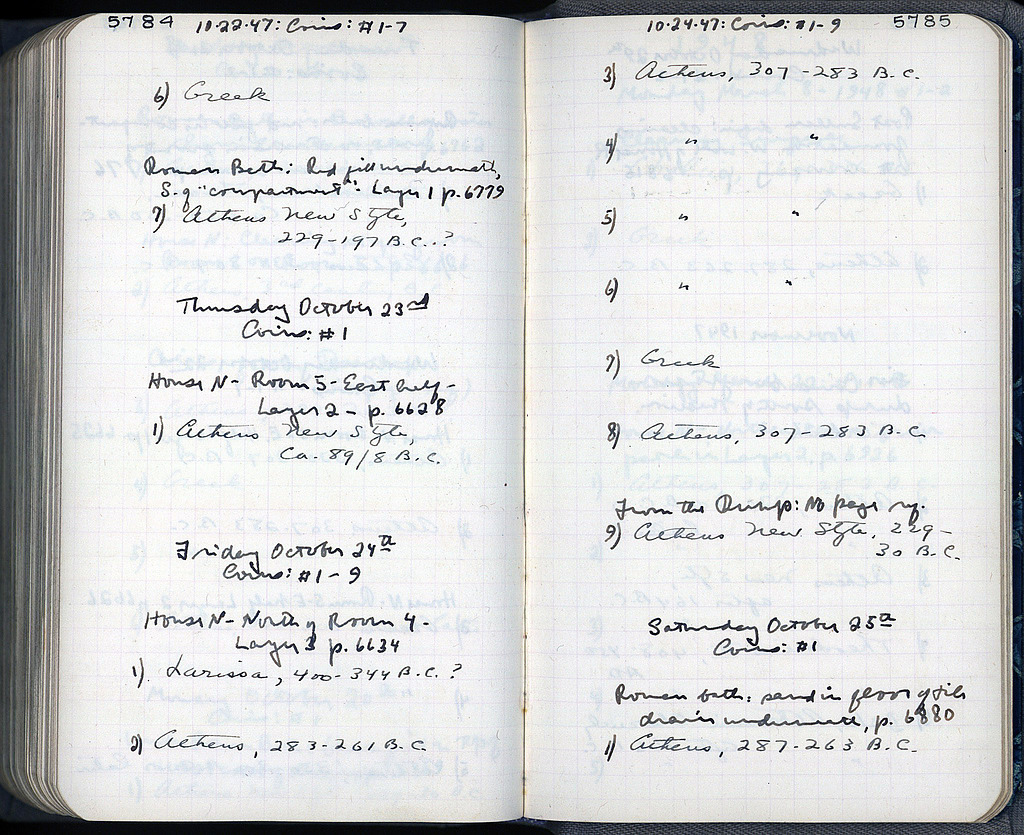 5784
10-22-47: Coins: #1-7
6) Greek
Roman Bath: Red fill underneath,
S. of "compartment" - Layer 1 p. 6779
7) Athens New Style,
229-197 B.C.?
Thursday October 23rd
Coins: #1
House N - Room 5 - East half -
Layer 2 - p. 6628
1) Athens New Style,
Ca. 89/8 B.C.
Friday October 24th
Coins: #1-9
House N - North of Room 4 -
Layer 3 p. 6634
1) Larissa, 400-344 B.C.?
2) Athens, 283-261 B.C.
10-24-47: Coins: #1-9
5785
3) Athens, 307-283 B.C.
4) " "
5) " "
6) " "
7) Greek
8) Athens, 307-283 B.C.
From the Dump: No page ref.
9) Athens New Style, 229-
30 B.C.
Saturday October 25th
Coins: #1
Roman bath: sand in floor of tile
drain underneath, p. 6880
1) Athens, 287-263 B.C.